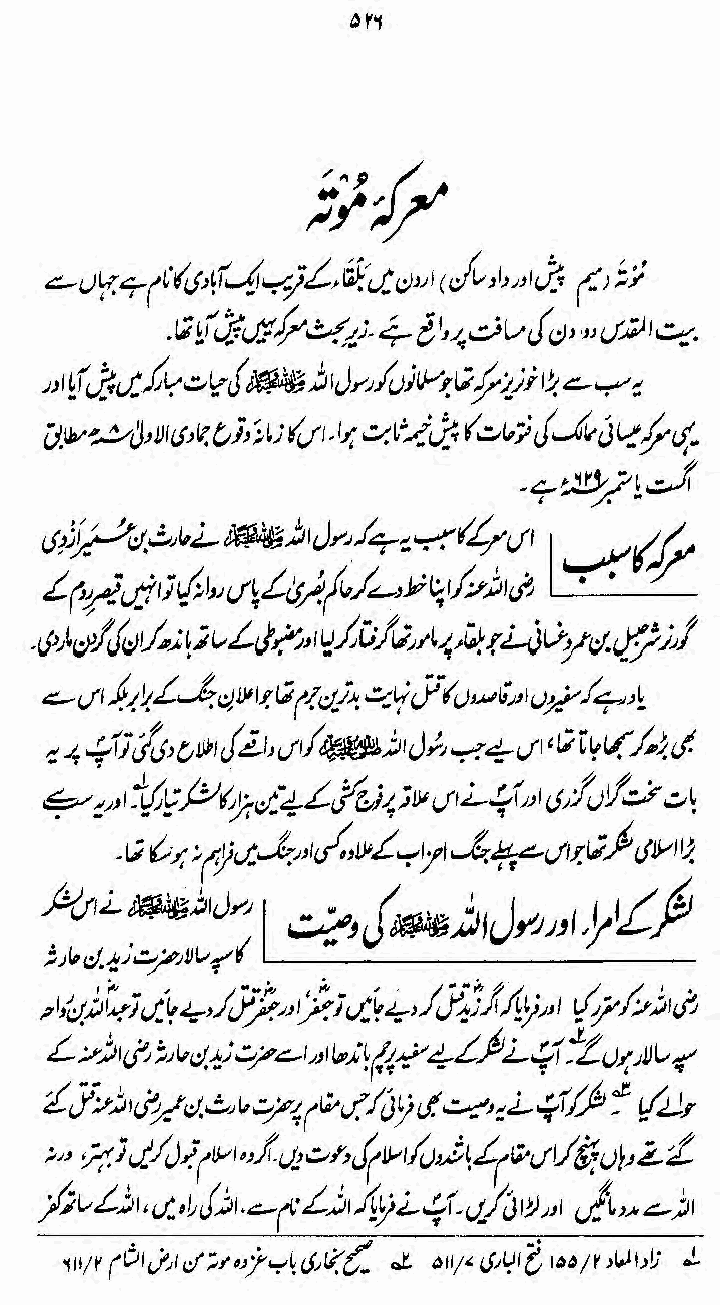 ۵۲۶
معرکۂ مُوْتَہ
مُوْتَہ (میم پیش اور واو ساکن) اردن میں بَلْقَاء کے قریب ایک آبادی کا نام ہے جہاں سے
بیت المقدس دو دن کی مسافت پر واقع ہے۔ زیرِ بحث معرکہ یہیں پیش آیا تھا۔
یہ سب سے بڑا خونریز معرکہ تھا جو مسلمانوں کو رسول اللہ ﷺ کی حیات مبارکہ میں پیش آیا اور
یہی معرکہ عیسائی ممالک کی فتوحات کا پیش خیمہ ثابت ہوا۔ اس کا زمانۂ وقوع جمادی الاولیٰ ۸ھ مطابق
اگست یا ستمبر ۶۲۹ء ہے۔
معرکہ کا سبب
اس معرکے کا سبب یہ ہے کہ رسول اللہ ﷺ نے حارث بن عُمَیر اَزْدِی
رضی اللہ عنہ کو اپنا خط دے کر حاکم بُصریٰ کے پاس روانہ کیا تو انہیں قیصرِ روم کے
گورنر شرحبیل بن عمرو غسانی نے جو بلقاء پر مامور تھا گرفتار کرلیا اور مضبوطی کے ساتھ باندھ کر ان کی گردن ماردی۔
یاد رہے کہ سفیروں اور قاصدوں کا قتل نہایت بدترین جرم تھا جو اعلانِ جنگ کے برابر بلکہ اس سے
بھی بڑھ کر سمجھا جاتا تھا، اس لیے جب رسُول اللہ ﷺ کو اس واقعے کی اطلاع دی گئی تو آپؐ پر یہ
بات سخت گراں گذری اور آپؐ نے اس علاقہ پر فوج کشی کے لیے تین ہزار کا لشکر تیار کیا۔ؔ۱ اور یہ سب سے
بڑا اسلامی لشکر تھا جو اس سے پہلے جنگ احزاب کے علاوہ کسی اور جنگ میں فراہم نہ ہوسکا تھا۔
لشکر کے امراء اور رسول اللہ ﷺ کی وصیّت
رسول اللہ ﷺ نے اس لشکر
کا سپہ سالار حضرت زید بن حارثہ
رضی اللہ عنہ کو مقرر کیا اور فرمایا کہ اگر زیدؓ قتل کر دیے جائیں تو جعفرؓ اور جعفرؓ قتل کر دیے جائیں تو عبداللہ بن رواحہ
سپہ سالار ہوں گے۔ؔ۲ آپؐ نے لشکر کے لیے سفید پرچم باندھا اور اسے حضرت زید بن حارثہ رضی اللہ عنہ کے
حوالے کیا۔ؔ۳ لشکر کو آپؐ نے یہ وصیت بھی فرمائی کہ جس مقام پر حضرت حارث بن عمیر رضی اللہ عنہ قتل کئے
گئے تھے وہاں پہنچ کر اس مقام کے باشندوں کو اسلام کی دعوت دیں۔ اگر وہ اسلام قبول کرلیں تو بہتر، ورنہ
اللہ سے مدد مانگیں اور لڑائی کریں۔ آپؐ نے فرمایا کہ اللہ کے نام سے، اللہ کی راہ میں، اللہ کے ساتھ کفر
ؔ۱ زاد المعاد ۲/۱۵۵ فتح الباری ۷/۵۱۱ ؔ۲ صحیح بخاری باب غزوہ موتہ من ارض الشام ۲/۶۱۱